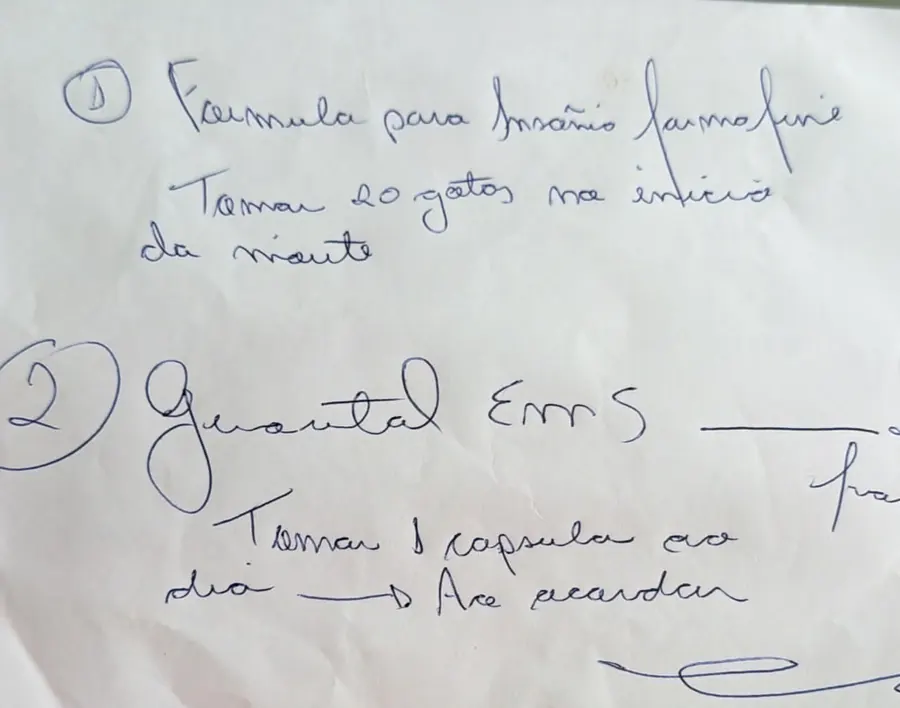 ① Formula para Insônio farmafine
Tomar 20 gotas no início
da noite
② Gerovital EMS
Tomar 1 capsula ao
dia → Ao acordar